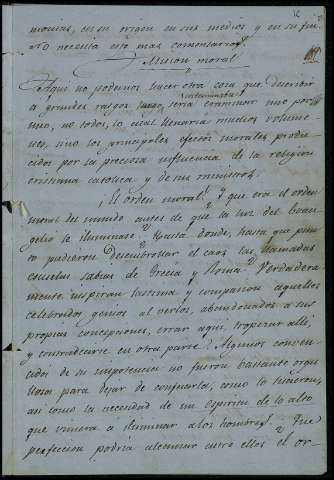 monias, en su origen en sus medios y en su fin.
No necesita esto mas comentarios.
Mision moral
Aqui no podemos hacer otra cosa que describir
interminable
a grandes rasgos, seria examinar uno por
uno, no todos, lo cual llenaria muchos volume-
nes, sino los principales efectos morales produ-
cidos por la preciosa influencia de la religion
cristiana catolica y de sus ministros.
¡El orden moral! ¿Y que era el orden
moral del mundo antes de que la luz del Evan-
gelio le iluminase? ¿Hasta donde, hasta que pun-
to pudieron desembrollar el caos las llamadas
escuelas sabias de Grecia y Roma? Verdadera-
mente inspiran lastima y compasion aquellos
celebrados genios al verlos, abandonados a sus
propias concepciones, errar aqui, tropezar alli,
y contradecirse en otra parte. Algunos conven-
cidos de su impotencia no fueron bastante orgu-
llosos para dejar de confesarla, como lo hicieron,
asi como la necesidad de un espiritu de lo alto
que viniera a iluminar a los hombres. ¿Que
perfeccion podria alcanzar entre ellos el or-